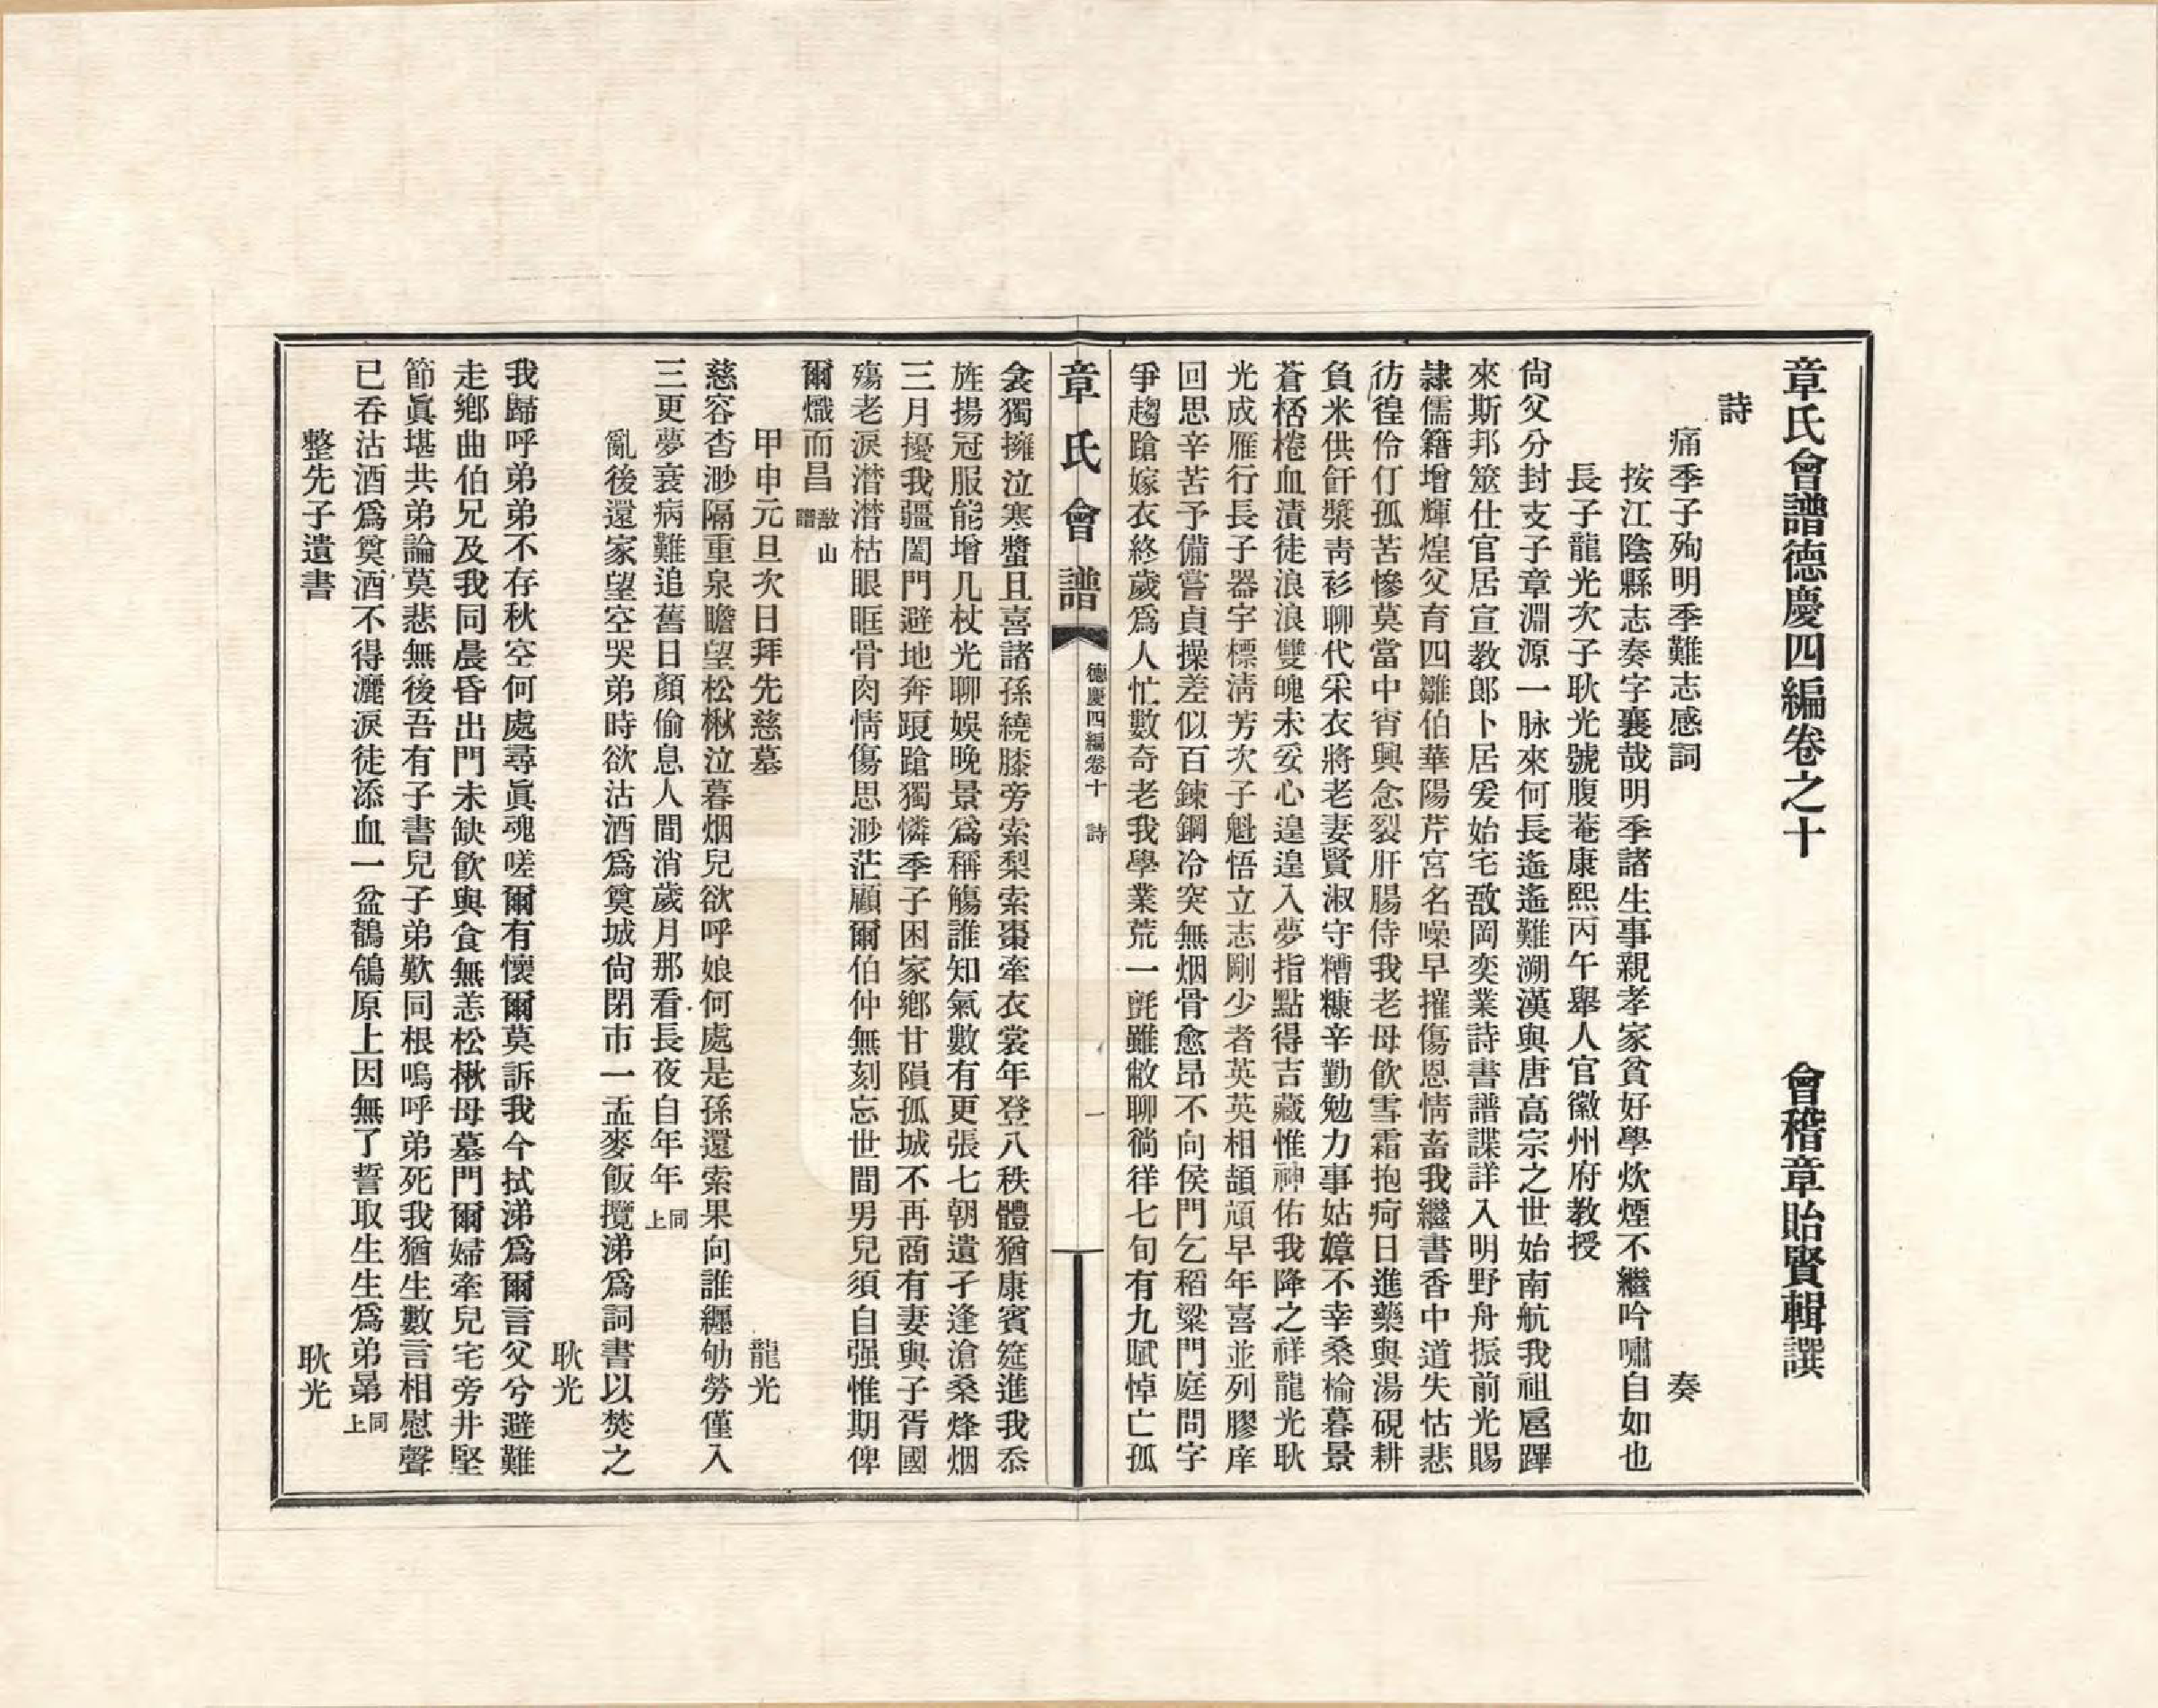 章氏會譜德慶四編卷之十　會稽章貽賢輯譔
詩
痛季子殉明季難志感詞　奏
按江陰縣志奏字襄哉明季諸生事親孝家貧好學炊煙不繼吟嘯自如也
長子龍光次子耿光號腹菴康熙丙午舉人官徽州府教授
尙父分封支子章淵源一脉來何長遙遙難溯漢與唐高宗之世始南航我祖扈蹕
來斯邦筮仕官居宣教郎卜居爰始宅敔岡奕業詩書譜諜詳入明野舟振前光賜
隷儒籍增輝煌父育四雛伯華陽芹宮名噪早摧傷恩情畜我繼書香中道失怙悲
彷徨伶仃孤苦慘莫當中宵興念裂肝腸侍我老母飮雪霜抱疴日進藥與湯硯耕
負米供飦漿靑衫聊代采衣將老妻賢淑守糟糠辛勤勉力事姑嫜不幸桑榆暮景
蒼桮棬血漬徒浪浪雙魄未妥心遑遑入夢指點得吉藏惟神佑我降之祥龍光耿
光成雁行長子器宇標淸芳次子魁悟立志剛少者英英相頡頏早年喜並列膠庠
回思辛苦予備嘗貞操差似百鍊鋼冷突無烟骨愈昂不向侯門乞稻粱門庭問字
爭趨蹌嫁衣終歲爲人忙數奇老我學業荒一氈雖敝聊徜徉七旬有九賦悼亡孤
章氏會譜　德慶四編卷十　詩　一
衾獨擁泣寒螿且喜諸孫繞膝旁索梨索棗牽衣裳年登八秩體猶康賓筵進我忝
旌揚冠服能增几杖光聊娛晚景爲稱觴誰知氣數有更張七朝遺孑逢滄桑烽烟
三月擾我疆闔門避地奔踉蹌獨憐季子困家鄕甘隕孤城不再商有妻與子胥國
殤老淚潸潸枯眼眶骨肉情傷思渺茫顧爾伯仲無刻忘世間男兒須自强惟期俾
爾熾而昌敔山譜
甲申元旦次日拜先慈墓　龍光
慈容杳渺隔重泉瞻望松楸泣暮烟兒欲呼娘何處是孫還索果向誰纏劬勞僅入
三更夢衰病難追舊日顏偷息人間消歲月那看長夜自年年同上
亂後還家望空哭弟時欲沽酒爲奠城尙閉市一盂麥飯攬涕爲詞書以焚之
耿光
我歸呼弟弟不存秋空何處尋眞魂嗟爾有懷爾莫訴我今拭涕爲爾言父兮避難
走鄕曲伯兄及我同晨昏出門未缺飮與食無恙松楸母墓門爾婦牽兒宅旁井堅
節眞堪共弟論莫悲無後吾有子書兒子弟歎同根嗚呼弟死我猶生數言相慰聲
已呑沽酒爲奠酒不得灑淚徒添血一盆鶺鴒原上因無了誓取生生爲弟晜同上
整先子遺書　耿光